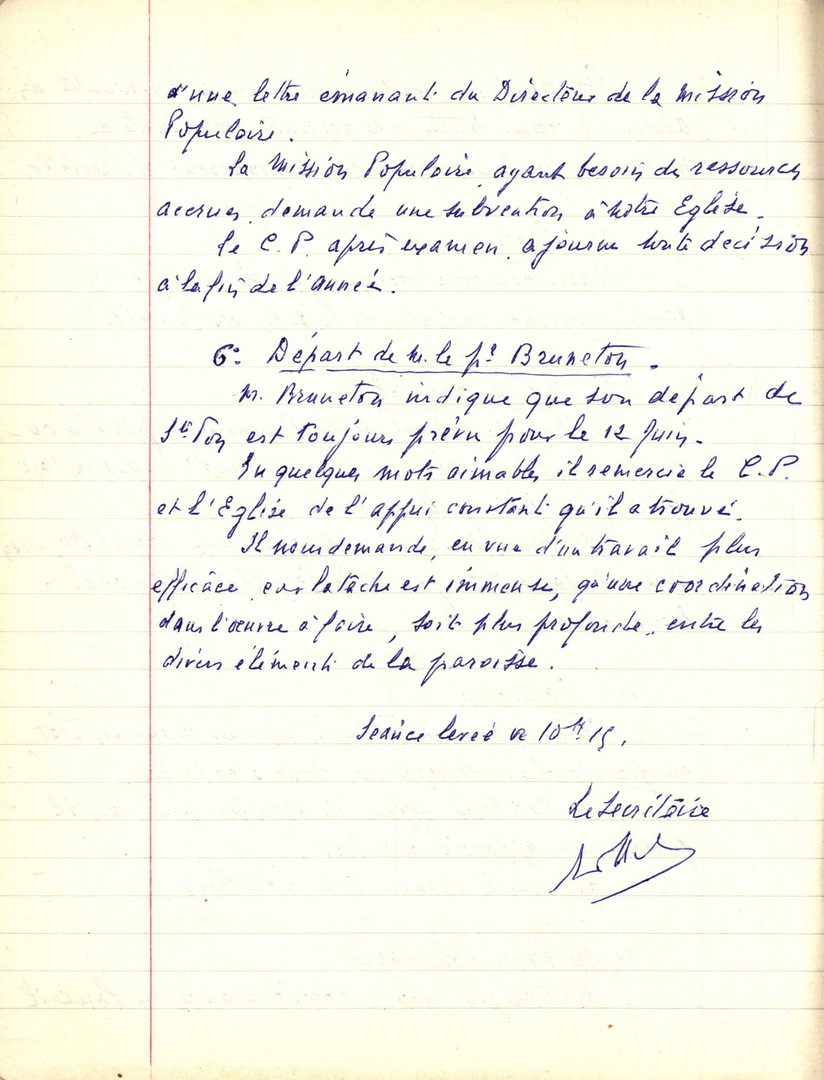 d'une lettre émanant du Directeur de la Mission
Populaire.
La Mission Populaire, ayant besoin de ressources
accrues, demande une subvention à notre Eglise.
Le C. P. après examen, ajourne toute décision
à la fin de l'année.
6° Départ de M. le pr Bruneton.
M. Bruneton indique que son départ de
est toujours prévu pour le 12 Juin.
En quelques mots aimables il remercie le C. P.
et l'Eglise de l'appui constant qu'il a trouvé.
Il nous demande, en vue d'un travail plus
efficace, car la tâche est immense, qu'une coordination
dans l'œuvre à faire, soit plus profonde, entre les
divers éléments de la paroisse.
Séance levée à 10h 15.
Le Secrétaire